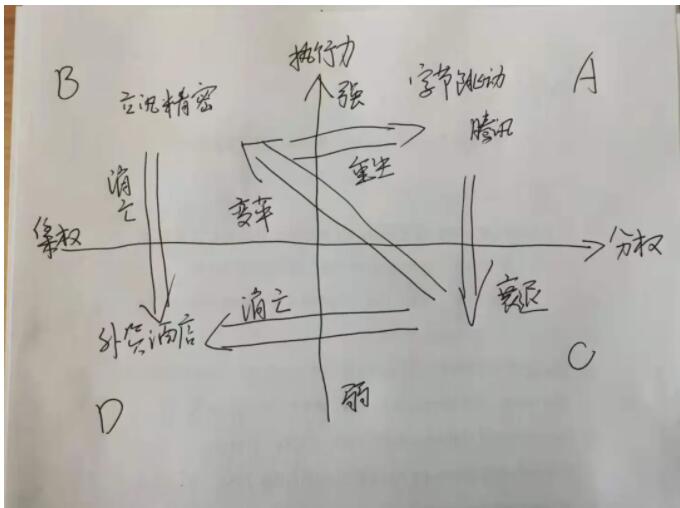 执行力
B
强
字节跳动
A
立讯精密
腾讯
重生
消亡
变革
集权
分权
消亡
衰退
外资酒店
C
D
弱